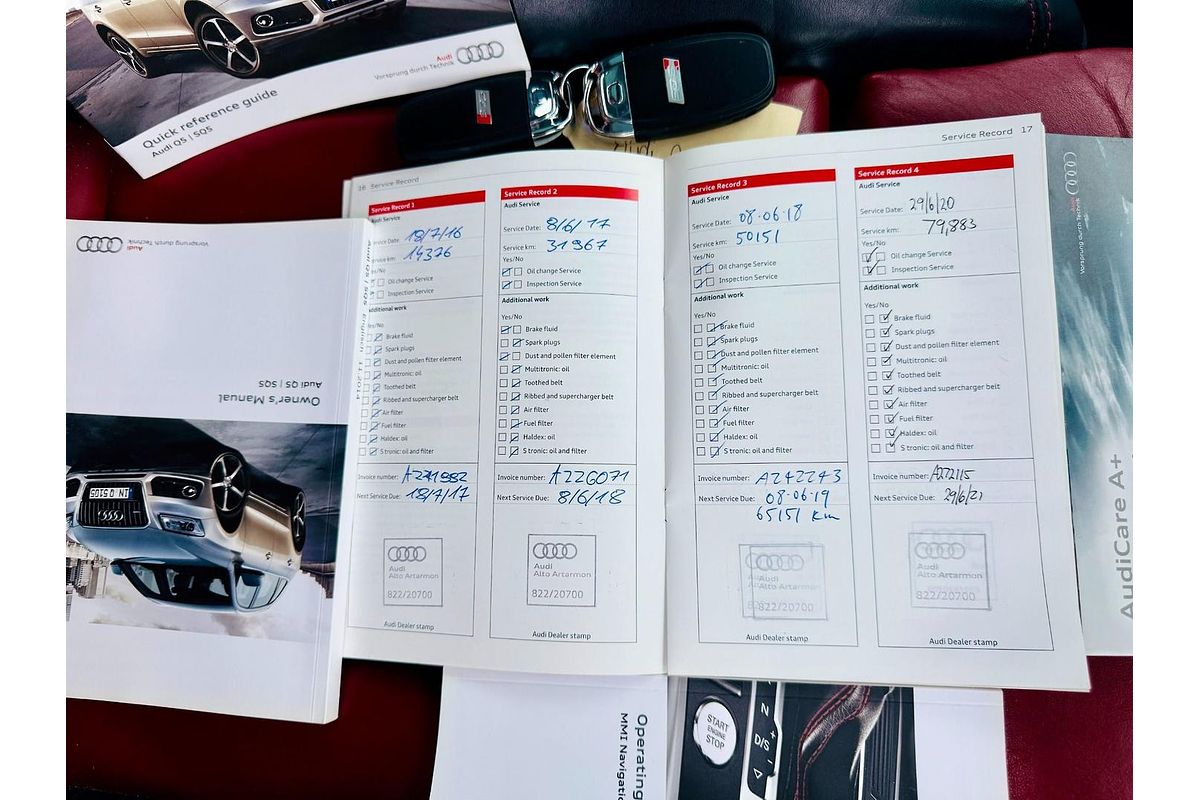 Quick reference guide
Audi Q5 | SQ5
Audi
Vorsprung durch Technik
Audi
Vorsprung durch Technik
Audi Q5 | SQ5
Owner's Manual
IN Q 5105
Audi Q5 | SQ5 Englisch 11.2014
16 Service Record
Service Record 1
Audi Service
Service Date: 18/7/16
Service km: 14376
Yes/No
Oil change Service
Inspection Service
Additional work
Yes/No
Brake fluid
Spark plugs
Dust and pollen filter element
Multitronic: oil
Toothed belt
Ribbed and supercharger belt
Air filter
Fuel filter
Haldex: oil
S tronic: oil and filter
Invoice number:
Next Service Due: 18/7/17
Audi
Alto Artarmon
822/20700
Audi Dealer stamp
Service Record 2
Audi Service
Service Date: 8/6/17
Service km: 31967
Yes/No
Oil change Service
Inspection Service
Additional work
Yes/No
Brake fluid
Spark plugs
Dust and pollen filter element
Multitronic: oil
Toothed belt
Ribbed and supercharger belt
Air filter
Fuel filter
Haldex: oil
S tronic: oil and filter
Invoice number: A226071
Next Service Due: 8/6/18
Audi
Alto Artarmon
822/20700
Audi Dealer stamp
Service Record 17
Service Record 3
Audi Service
Service Date: 08.06.18
Service km: 50151
Yes/No
Oil change Service
Inspection Service
Additional work
Yes/No
Brake fluid
Spark plugs
Dust and pollen filter element
Multitronic: oil
Toothed belt
Ribbed and supercharger belt
Air filter
Fuel filter
Haldex: oil
S tronic: oil and filter
Invoice number: A242243
Next Service Due: 08.06.19
65151 km
Audi
Alto Artarmon
822/20700
Audi Dealer stamp
Service Record 4
Audi Service
Service Date: 29/6/20
Service km: 79,883
Yes/No
Oil change Service
Inspection Service
Additional work
Yes/No
Brake fluid
Spark plugs
Dust and pollen filter element
Multitronic: oil
Toothed belt
Ribbed and supercharger belt
Air filter
Fuel filter
Haldex: oil
S tronic: oil and filter
Invoice number: A272115
Next Service Due: 29/6/21
Audi
Alto Artarmon
822/20700
Audi Dealer stamp
Audi
Vorsprung durch Technik
AudiCare A+
Operating
MMI Navigatio
START
ENGINE
STOP
N
D/S
+